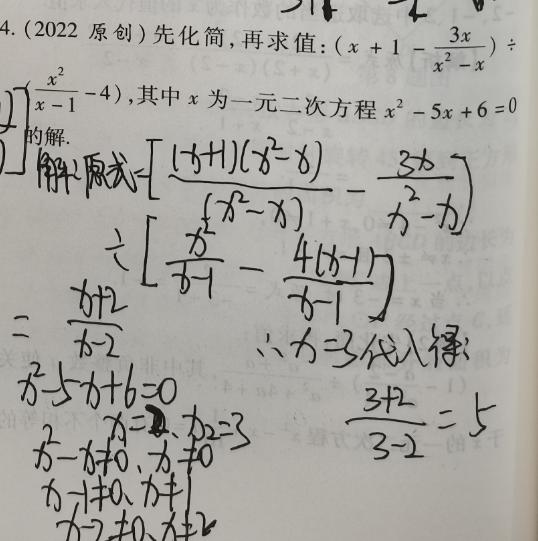 4. (2022 原创) 先化简, 再求值: (x + 1 - 3x/(x² - x)) ÷
(x²/(x - 1) - 4), 其中 x 为一元二次方程 x² - 5x + 6 = 0
的解.
解: 原式=[(x+1)(x²-x)/(x²-x) - 3x/(x²-x)]
÷[x²/(x-1) - 4(x-1)/(x-1)]
= (x+2)/(x-2)
∴x=3代入得:
x²-5x+6=0
(3+2)/(3-2) = 5
x=2、x₂=3
x²-x≠0、x≠0
x-1≠0、x≠1
x-2≠0、x≠2